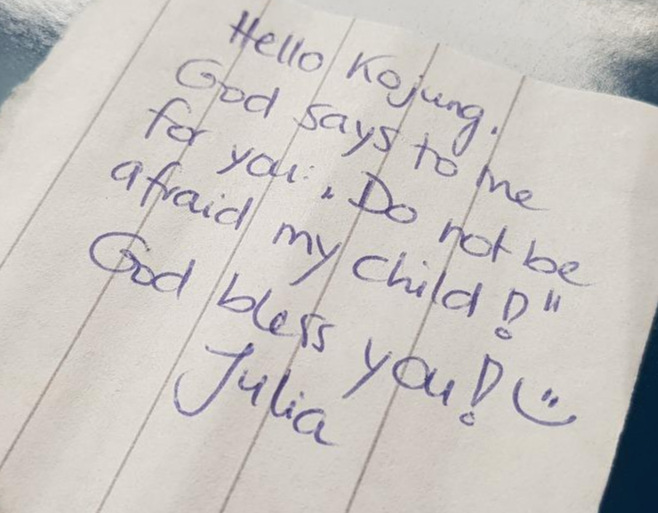 Hello Kojung.
God says to me
for you: „Do not be
afraid my child!"
God bless you! :)
Julia